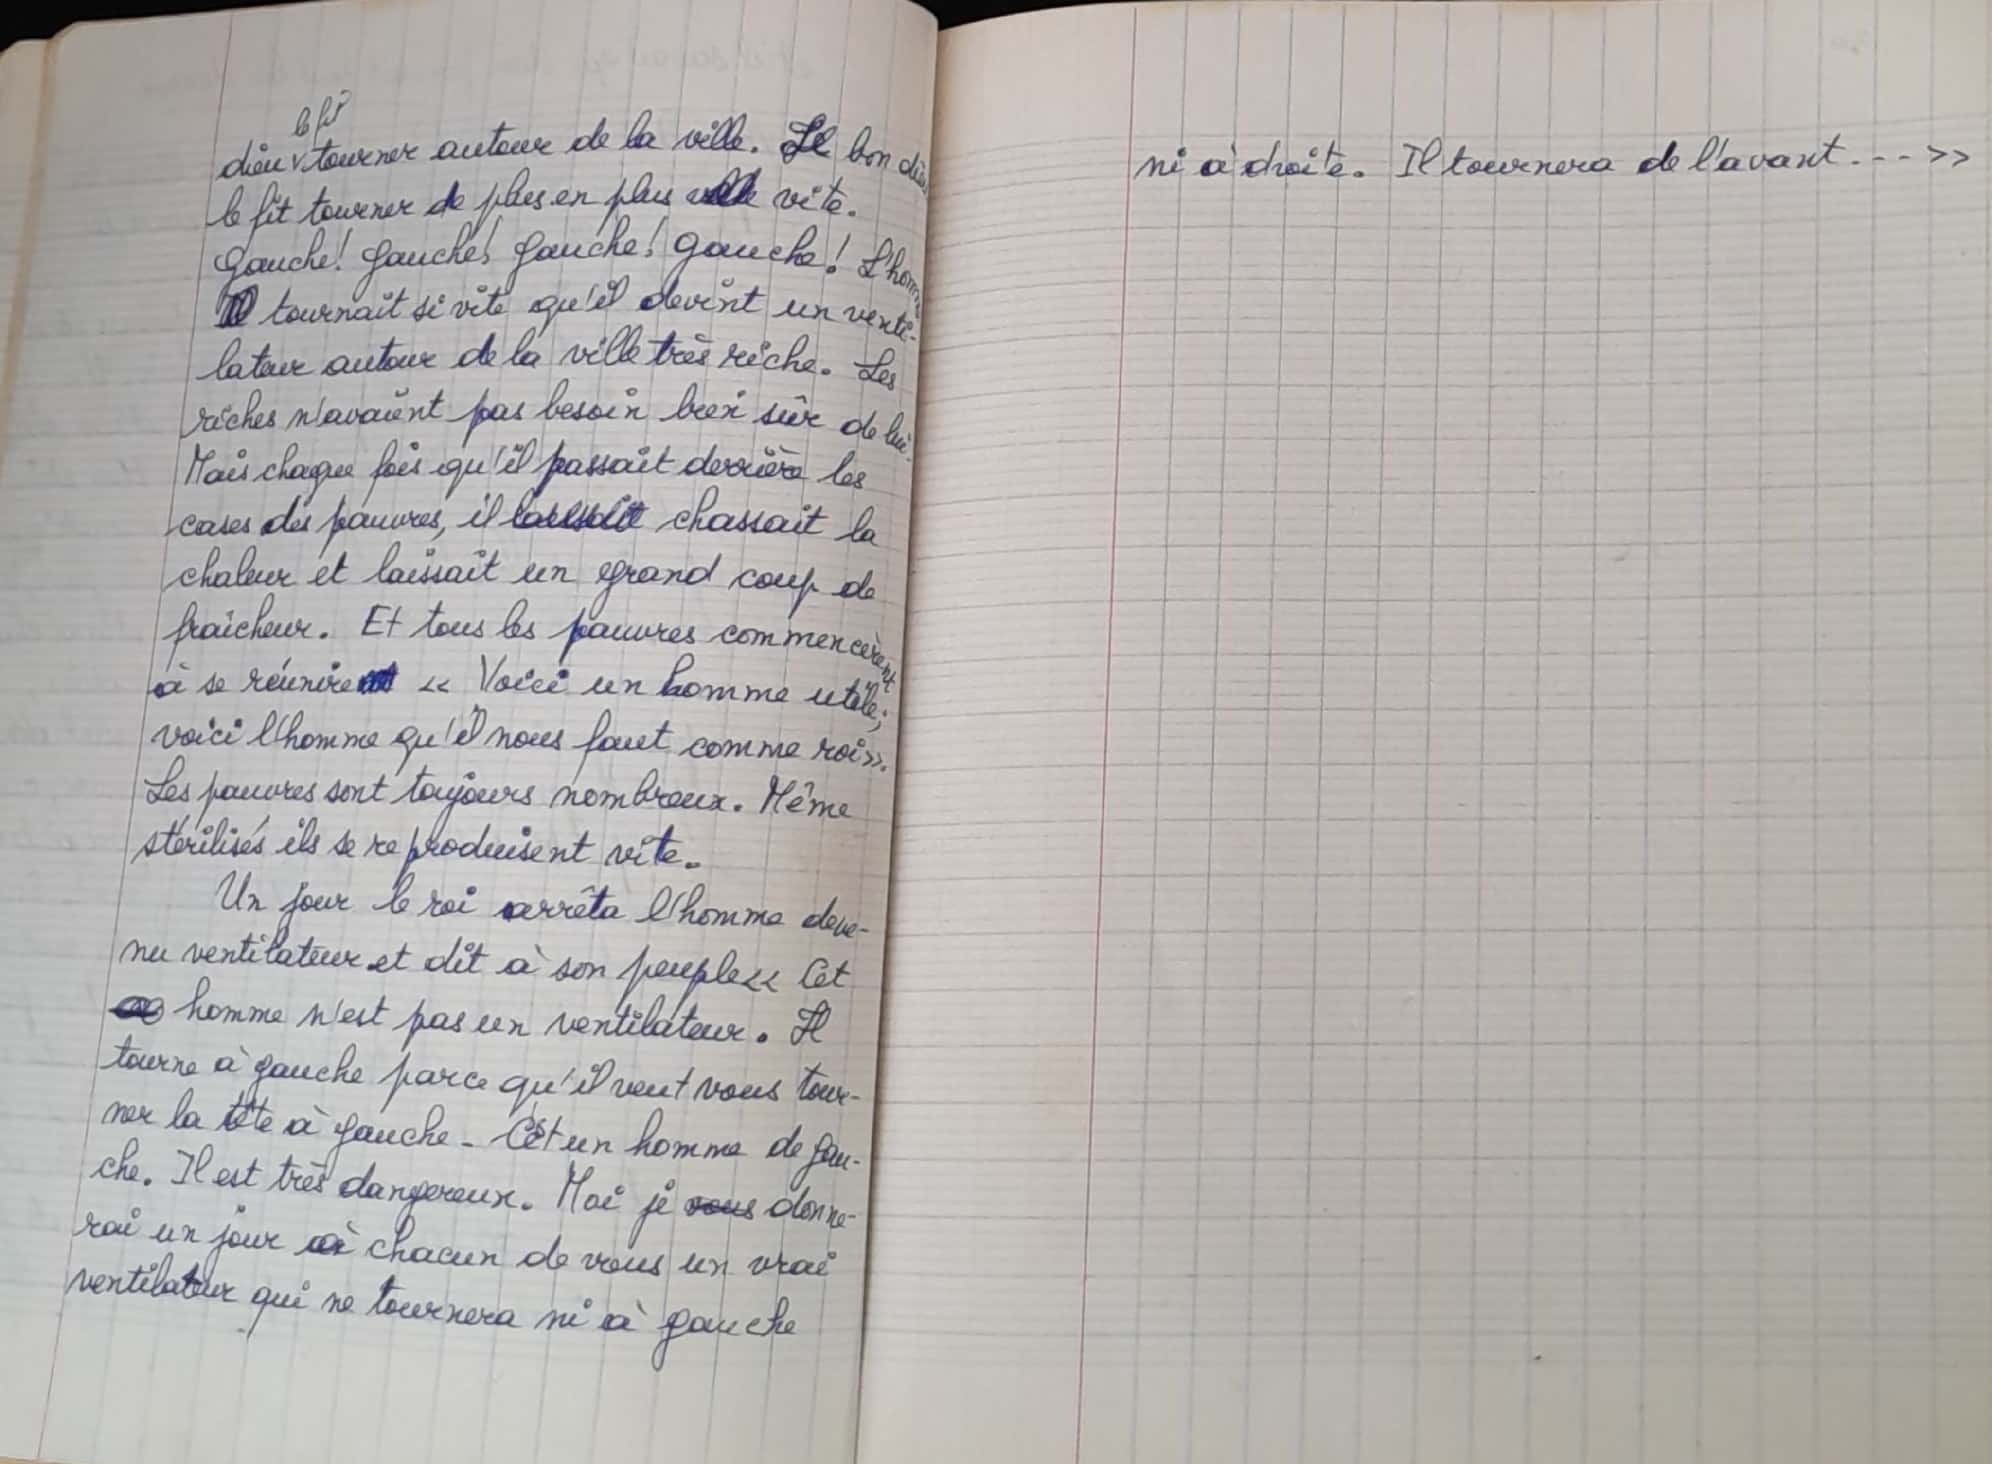 le fit
dieu tourner autour de la ville. Le bon dieu
le fit tourner de plus en plus vite.
Gauche! Gauche! Gauche! Gauche! L'homme
tournait si vite qu'il devint un venti-
lateur autour de la ville très riche. Les
riches n'avaient pas besoin bien sûr de lui.
Mais chaque fois qu'il passait derrière les
cases des pauvres, il chassait la
chaleur et laissait un grand coup de
fraîcheur. Et tous les pauvres commencèrent
à se réunir << Voici un homme utile;
voici l'homme qu'il nous faut comme roi>>.
Les pauvres sont toujours nombreux. Même
stérilisés ils se reproduisent vite.
Un jour le roi arrêta l'homme deve-
nu ventilateur et dit à son peuple << Cet
homme n'est pas un ventilateur. Il
tourne à gauche parce qu'il veut vous tour-
ner la tête à gauche - C'est un homme de gau-
che. Il est très dangereux. Moi je vous donne-
rai un jour à chacun de vous un vrai
ventilateur qui ne tournera ni à gauche
ni à droite. Il tournera de l'avant....>>